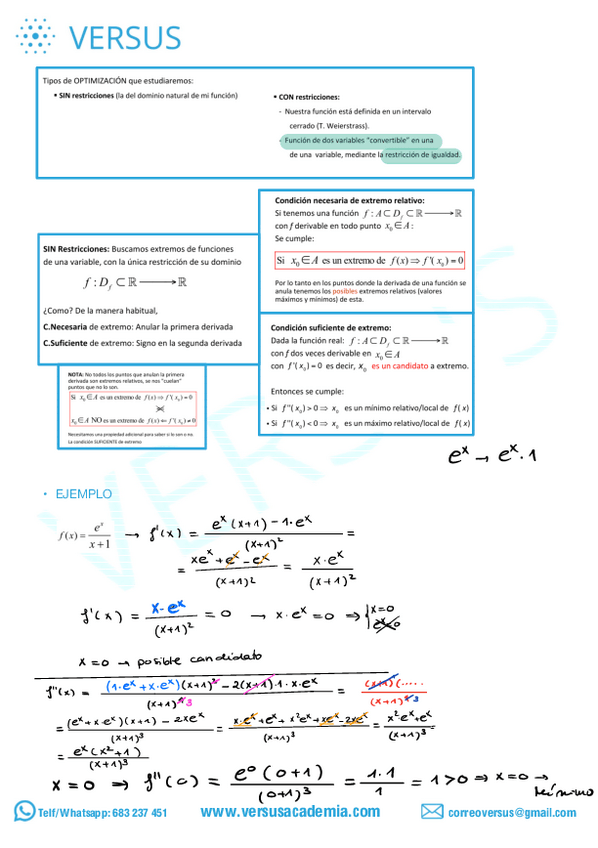 VERSUS
Tipos de OPTIMIZACIÓN que estudiaremos:
• SIN restricciones (la del dominio natural de mi función)
• CON restricciones:
- Nuestra función está definida en un intervalo
cerrado (T. Weierstrass).
- Función de dos variables "convertible" en una
de una variable, mediante la restricción de igualdad.
SIN Restricciones: Buscamos extremos de funciones
de una variable, con la única restricción de su dominio
f : D_f ⊂ ℝ ⟶ ℝ
¿Como? De la manera habitual,
C.Necesaria de extremo: Anular la primera derivada
C.Suficiente de extremo: Signo en la segunda derivada
NOTA: No todos los puntos que anulan la primera
derivada son extremos relativos, se nos "cuelan"
puntos que no lo son.
Si x₀ ∈ A es un extremo de f(x) ⇒ f'(x₀) = 0
x₀ ∈ A NO es un extremo de f(x) ⇐ f'(x₀) = 0
Necesitamos una propiedad adicional para saber si lo son o no
La condición SUFICIENTE de extremo
Condición necesaria de extremo relativo:
Si tenemos una función f : A ⊂ D_f ⊂ ℝ ⟶ ℝ
con f derivable en todo punto x₀ ∈ A :
Se cumple:
Si x₀ ∈ A es un extremo de f(x) ⇒ f'(x₀) = 0
Por lo tanto en los puntos donde la derivada de una función se
anula tenemos los posibles extremos relativos (valores
máximos y mínimos) de esta.
Condición suficiente de extremo:
Dada la función real: f : A ⊂ D_f ⊂ ℝ ⟶ ℝ
con f dos veces derivable en x₀ ∈ A
con f'(x₀) = 0 es decir, x₀ es un candidato a extremo.
Entonces se cumple:
• Si f''(x₀) > 0 ⇒ x₀ es un mínimo relativo/local de f(x)
• Si f''(x₀) < 0 ⇒ x₀ es un máximo relativo/local de f(x)
eˣ → eˣ · 1
• EJEMPLO
f(x) = eˣ/(x+1) → f'(x) = (eˣ(x+1) − 1·eˣ)/(x+1)² =
= (xeˣ + eˣ − eˣ)/(x+1)² = (x·eˣ)/(x+1)²
f'(x) = (x·eˣ)/(x+1)² = 0 → x·eˣ = 0 ⇒ { x=0
eˣ=0
x = 0 → posible candidato
f''(x) = ((1·eˣ + x·eˣ)(x+1)² − 2(x+1)·1·x·eˣ)/(x+1)⁴ ³ = ((x+1)(.....)/(x+1)⁴ ³
= ((eˣ + x·eˣ)(x+1) − 2xeˣ)/(x+1)³ = (x·eˣ + eˣ + x²eˣ + xeˣ − 2xeˣ)/(x+1)³ = (x²·eˣ + eˣ)/(x+1)³
= eˣ(x²+1)/(x+1)³
x = 0 ⇒ f''(0) = e⁰(0+1)/(0+1)³ = 1·1/1 = 1 > 0 ⇒ x=0 →
Mínimo
Telf/Whatsapp: 683 237 451 www.versusacademia.com correoversus@gmail.com